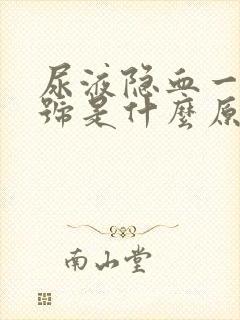 尿液隐血一
號是什麼原
南山堂